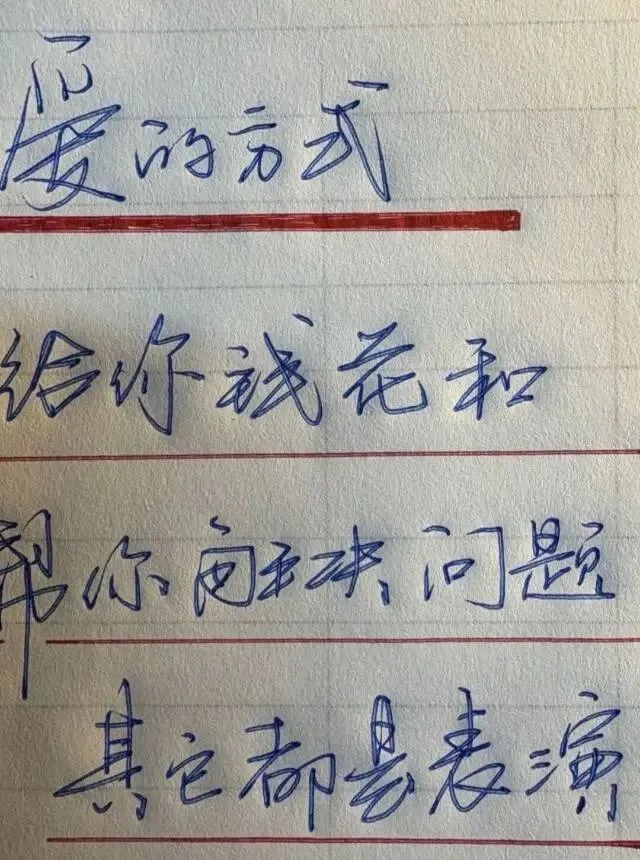 爱的方式
给你钱花和
帮你解决问题
其它都是表演